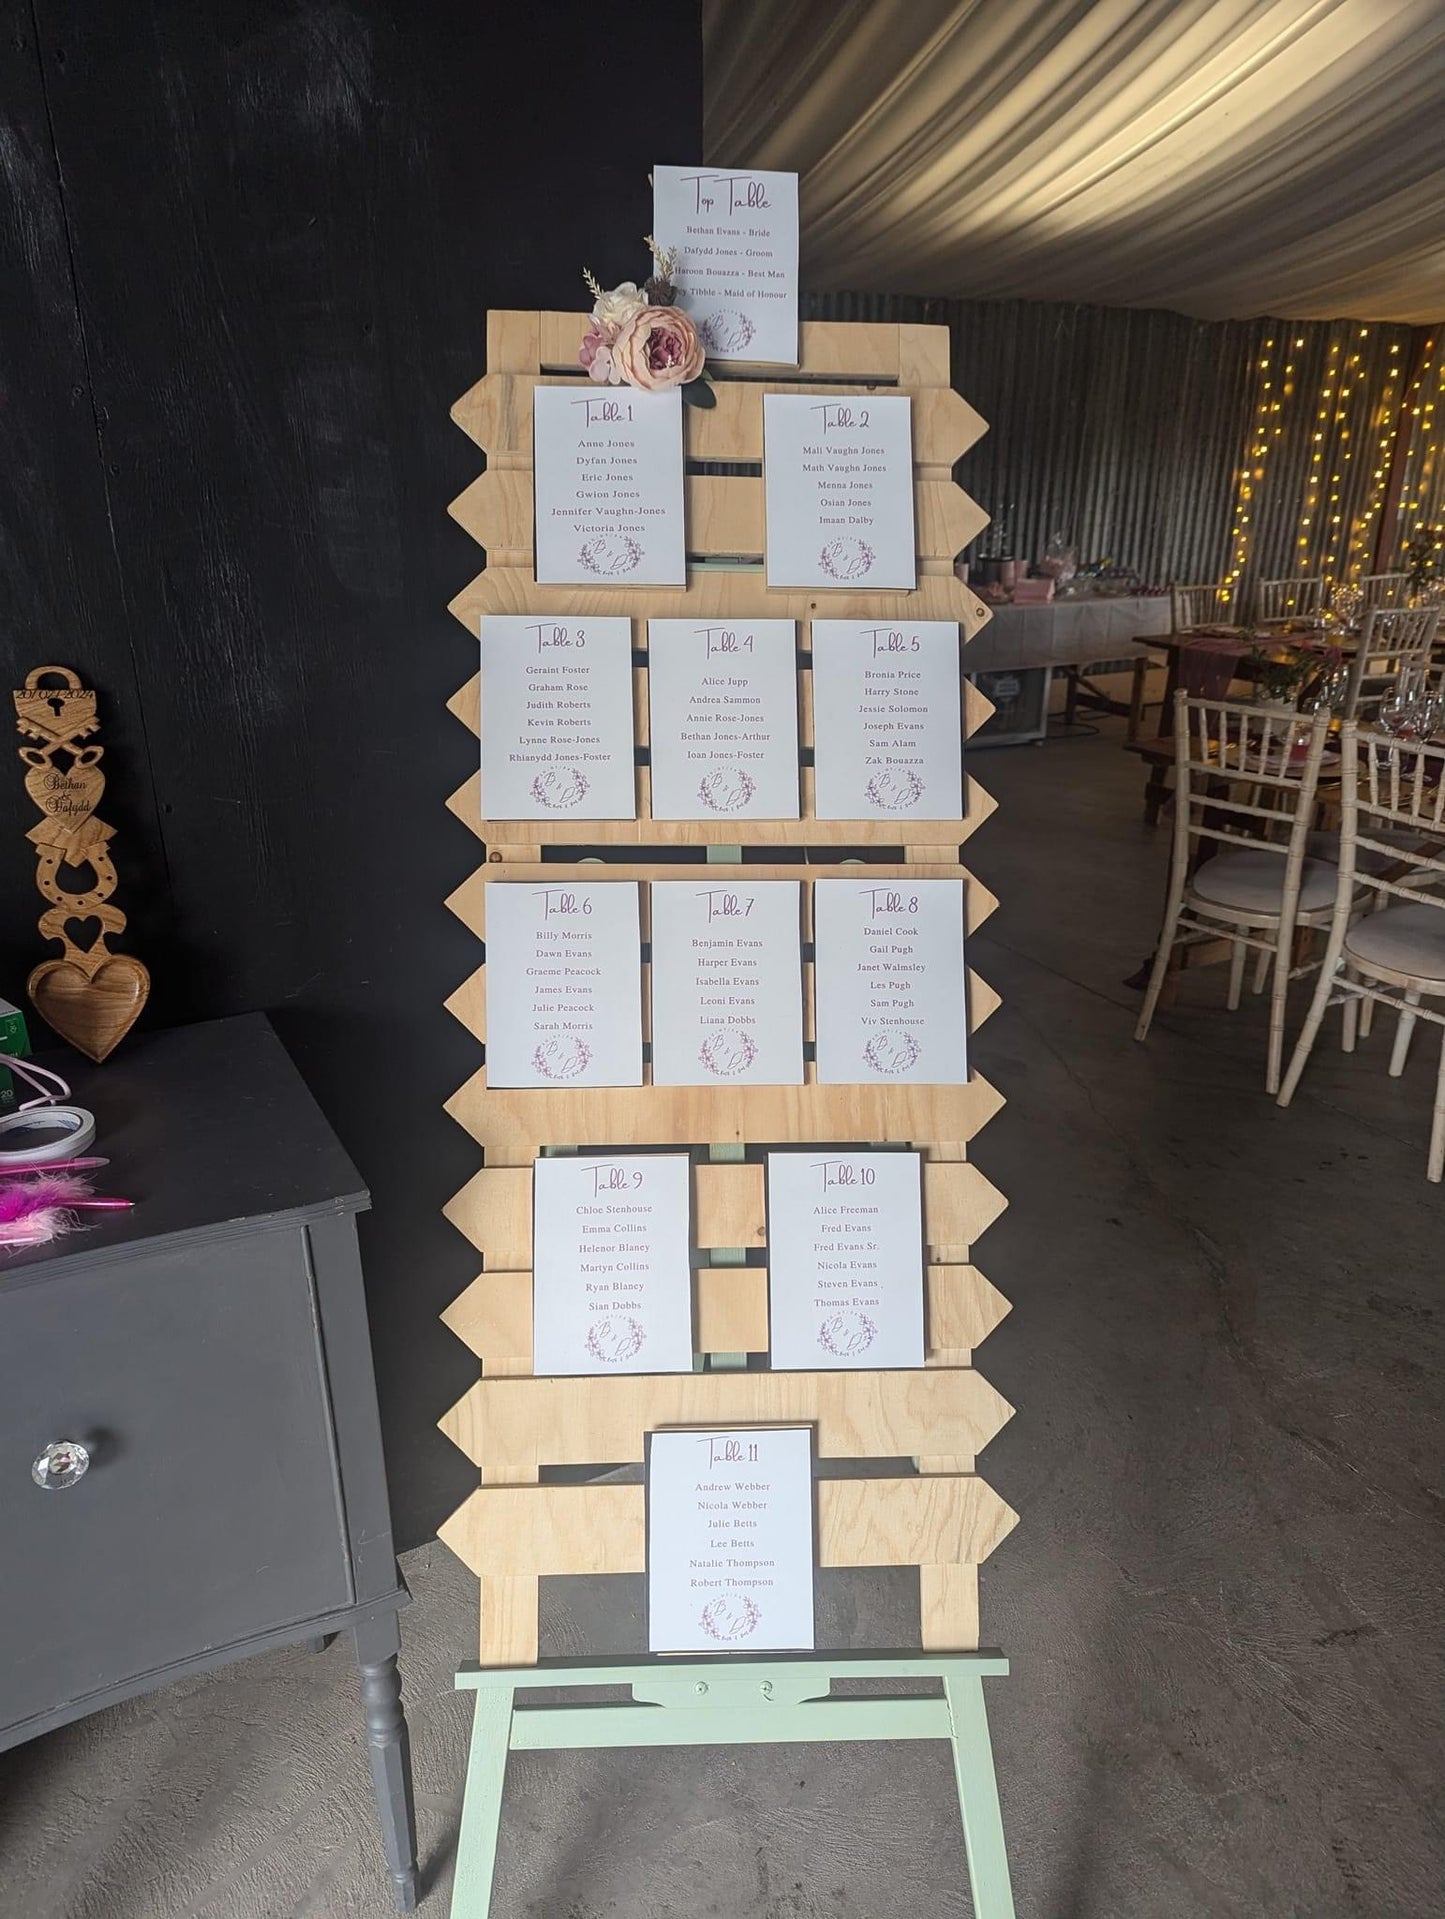 Top Table
Bethan Evans - Bride
Dafydd Jones - Groom
Haroon Bouazza - Best Man
Tibble - Maid of Honour
Table 1
Anne Jones
Dyfan Jones
Eric Jones
Gwion Jones
Jennifer Vaughn-Jones
Victoria Jones
B & D
Table 2
Mali Vaughn Jones
Math Vaughn Jones
Menna Jones
Osian Jones
Imaan Dalby
B & D
Table 3
Geraint Foster
Graham Rose
Judith Roberts
Kevin Roberts
Lynne Rose-Jones
Rhianydd Jones-Foster
B & D
Table 4
Alice Jupp
Andrea Sammon
Annie Rose-Jones
Bethan Jones-Arthur
Ioan Jones-Foster
B & D
Table 5
Bronia Price
Harry Stone
Jessie Solomon
Joseph Evans
Sam Alam
Zak Bouazza
B & D
Table 6
Billy Morris
Dawn Evans
Graeme Peacock
James Evans
Julie Peacock
Sarah Morris
B & D
Table 7
Benjamin Evans
Harper Evans
Isabella Evans
Leoni Evans
Liana Dobbs
B & D
Table 8
Daniel Cook
Gail Pugh
Janet Walmsley
Les Pugh
Sam Pugh
Viv Stenhouse
B & D
Table 9
Chloe Stenhouse
Emma Collins
Helenor Blaney
Martyn Collins
Ryan Blaney
Sian Dobbs
B & D
Table 10
Alice Freeman
Fred Evans
Fred Evans Sr.
Nicola Evans
Steven Evans
Thomas Evans
B & D
Table 11
Andrew Webber
Nicola Webber
Julie Betts
Lee Betts
Natalie Thompson
Robert Thompson
B & D
Bethan
&
Dafydd
20